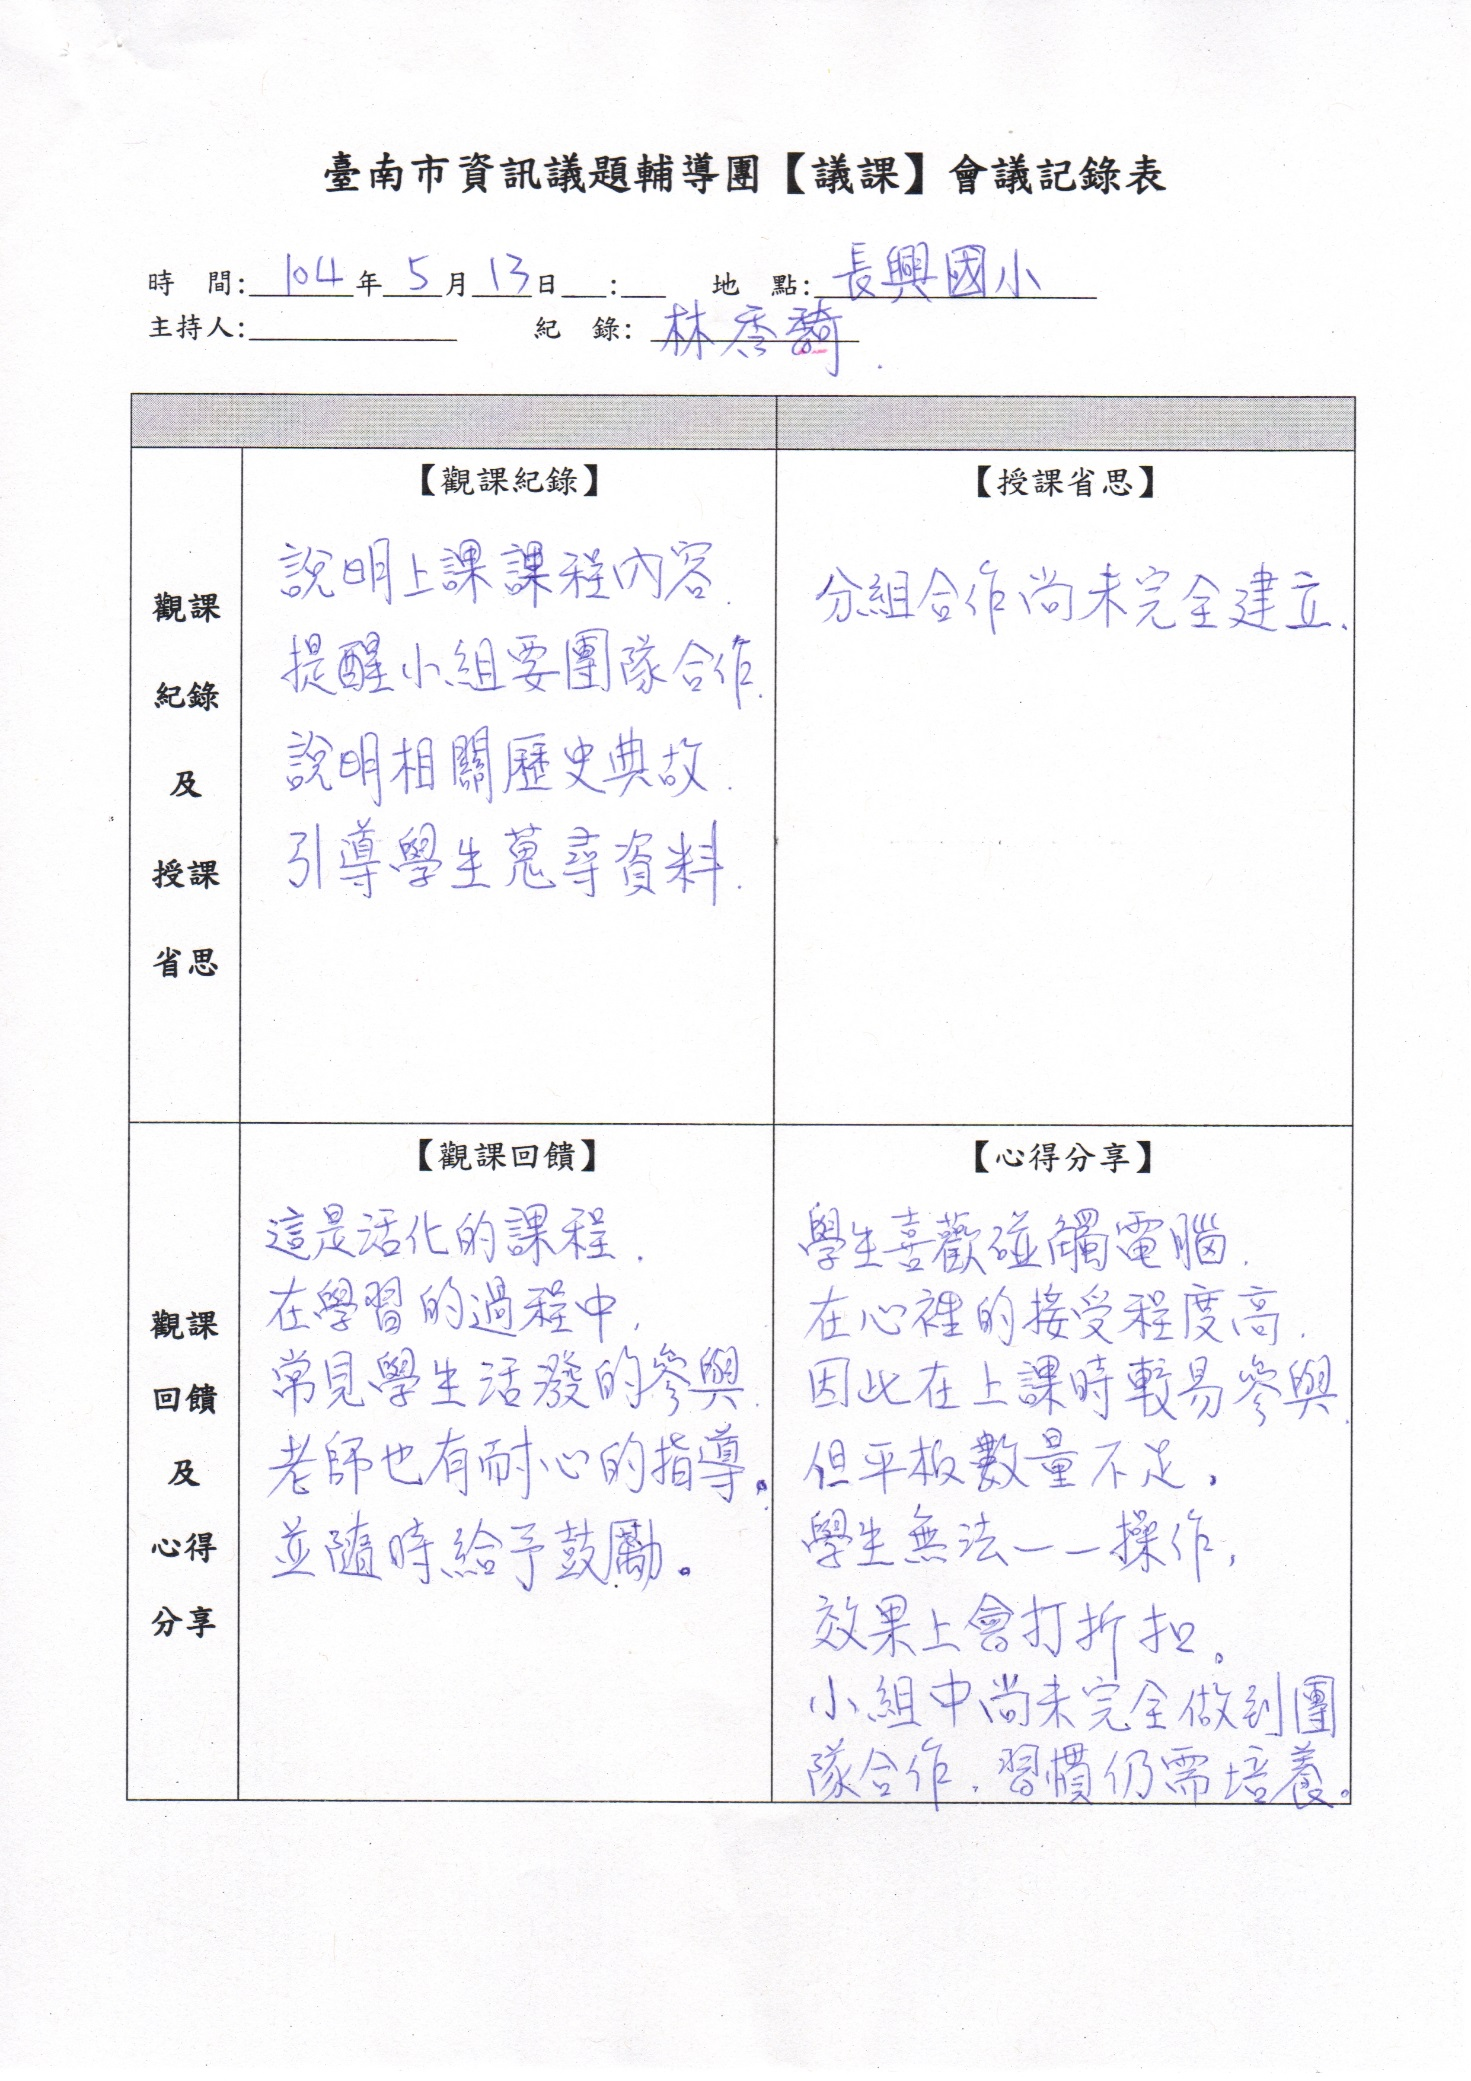 臺南市資訊議題輔導團【議課】會議記錄表
時 間: 104 年 5 月 13 日 : 地 點: 長興國小
主持人: 紀 錄: 林秀
【觀課紀錄】 【授課省思】
觀課
紀錄
及
授課
省思
說明上課課程內容.
提醒小組要團隊合作.
說明相關歷史典故.
引導學生蒐尋資料.
分組合作尚未完全建立.
【觀課回饋】 【心得分享】
觀課
回饋
及
心得
分享
這是活化的課程.
在學習的過程中,
常見學生活潑的參與.
老師也有耐心的指導。
並隨時給予鼓勵。
學生喜歡碰觸電腦.
在心裡的接受程度高.
因此在上課時較易參與.
但平板數量不足.
學生無法一一操作,
效果上會打折扣。
小組中尚未完全做到團
隊合作.習慣仍需培養。